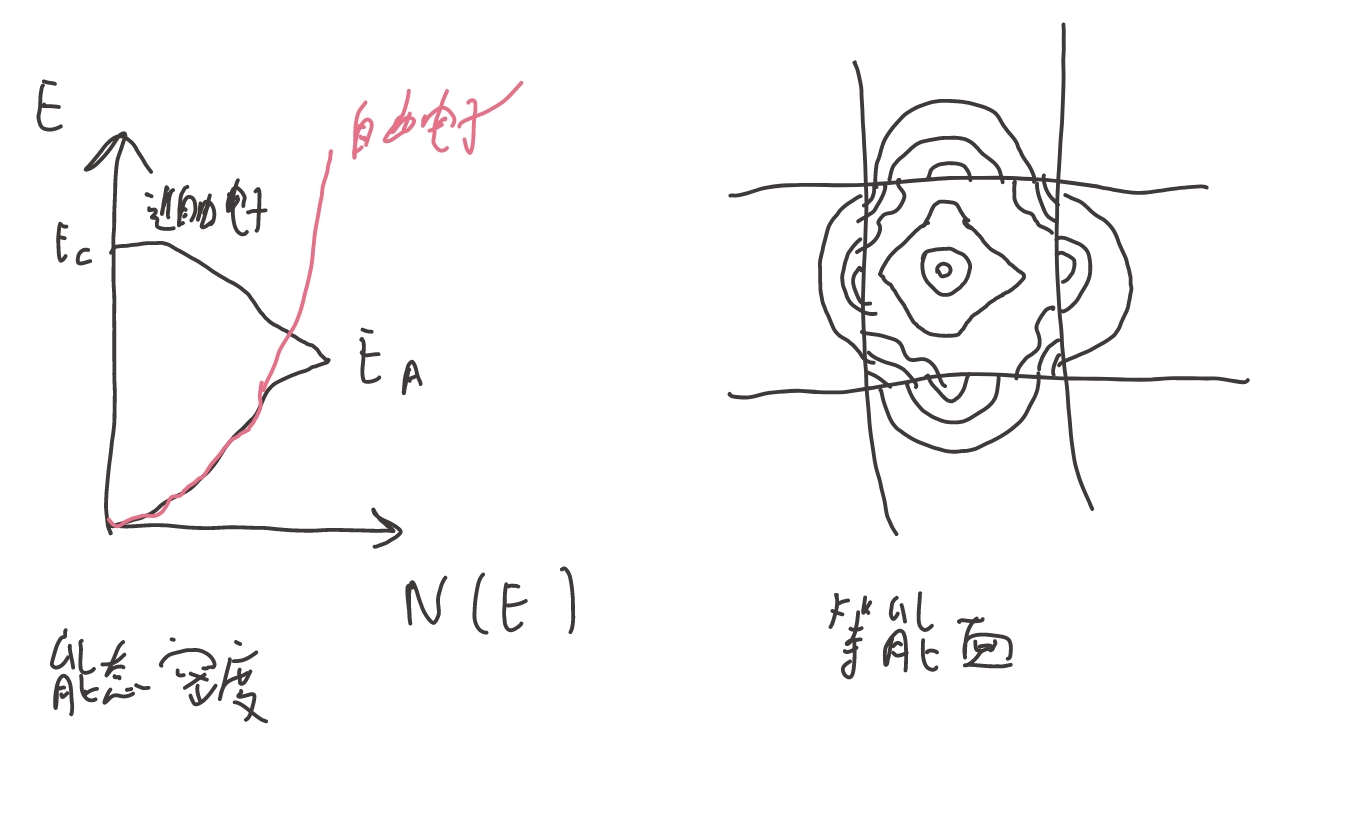 E
自由电子
近自由电子
Ec
EA
N(E)
能态密度
等能面